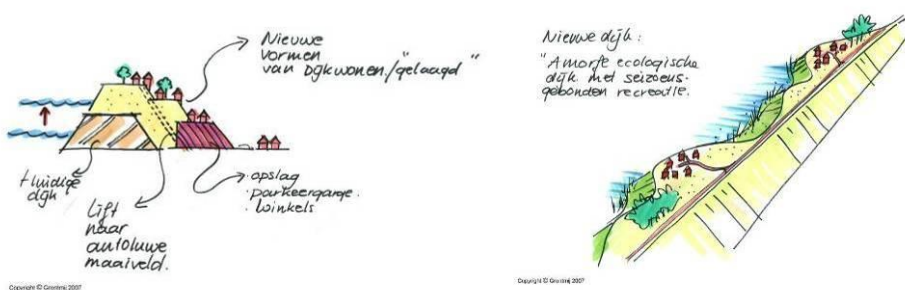 Nieuwe
vormen
van Dijkwonen/"gelaagd"
Huidige
dijk
Lift
naar
autoluwe
maaiveld.
· opslag
· parkeergarage.
· winkels
Copyright © Grontmij 2007
Nieuwe dijk:
"Amorfe ecologische
dijk met seizoens-
gebonden recreatie.
Copyright © Grontmij 2007